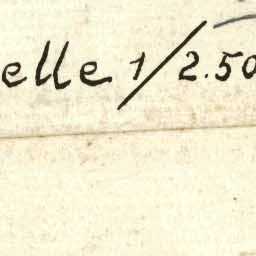 elle 1/2.50